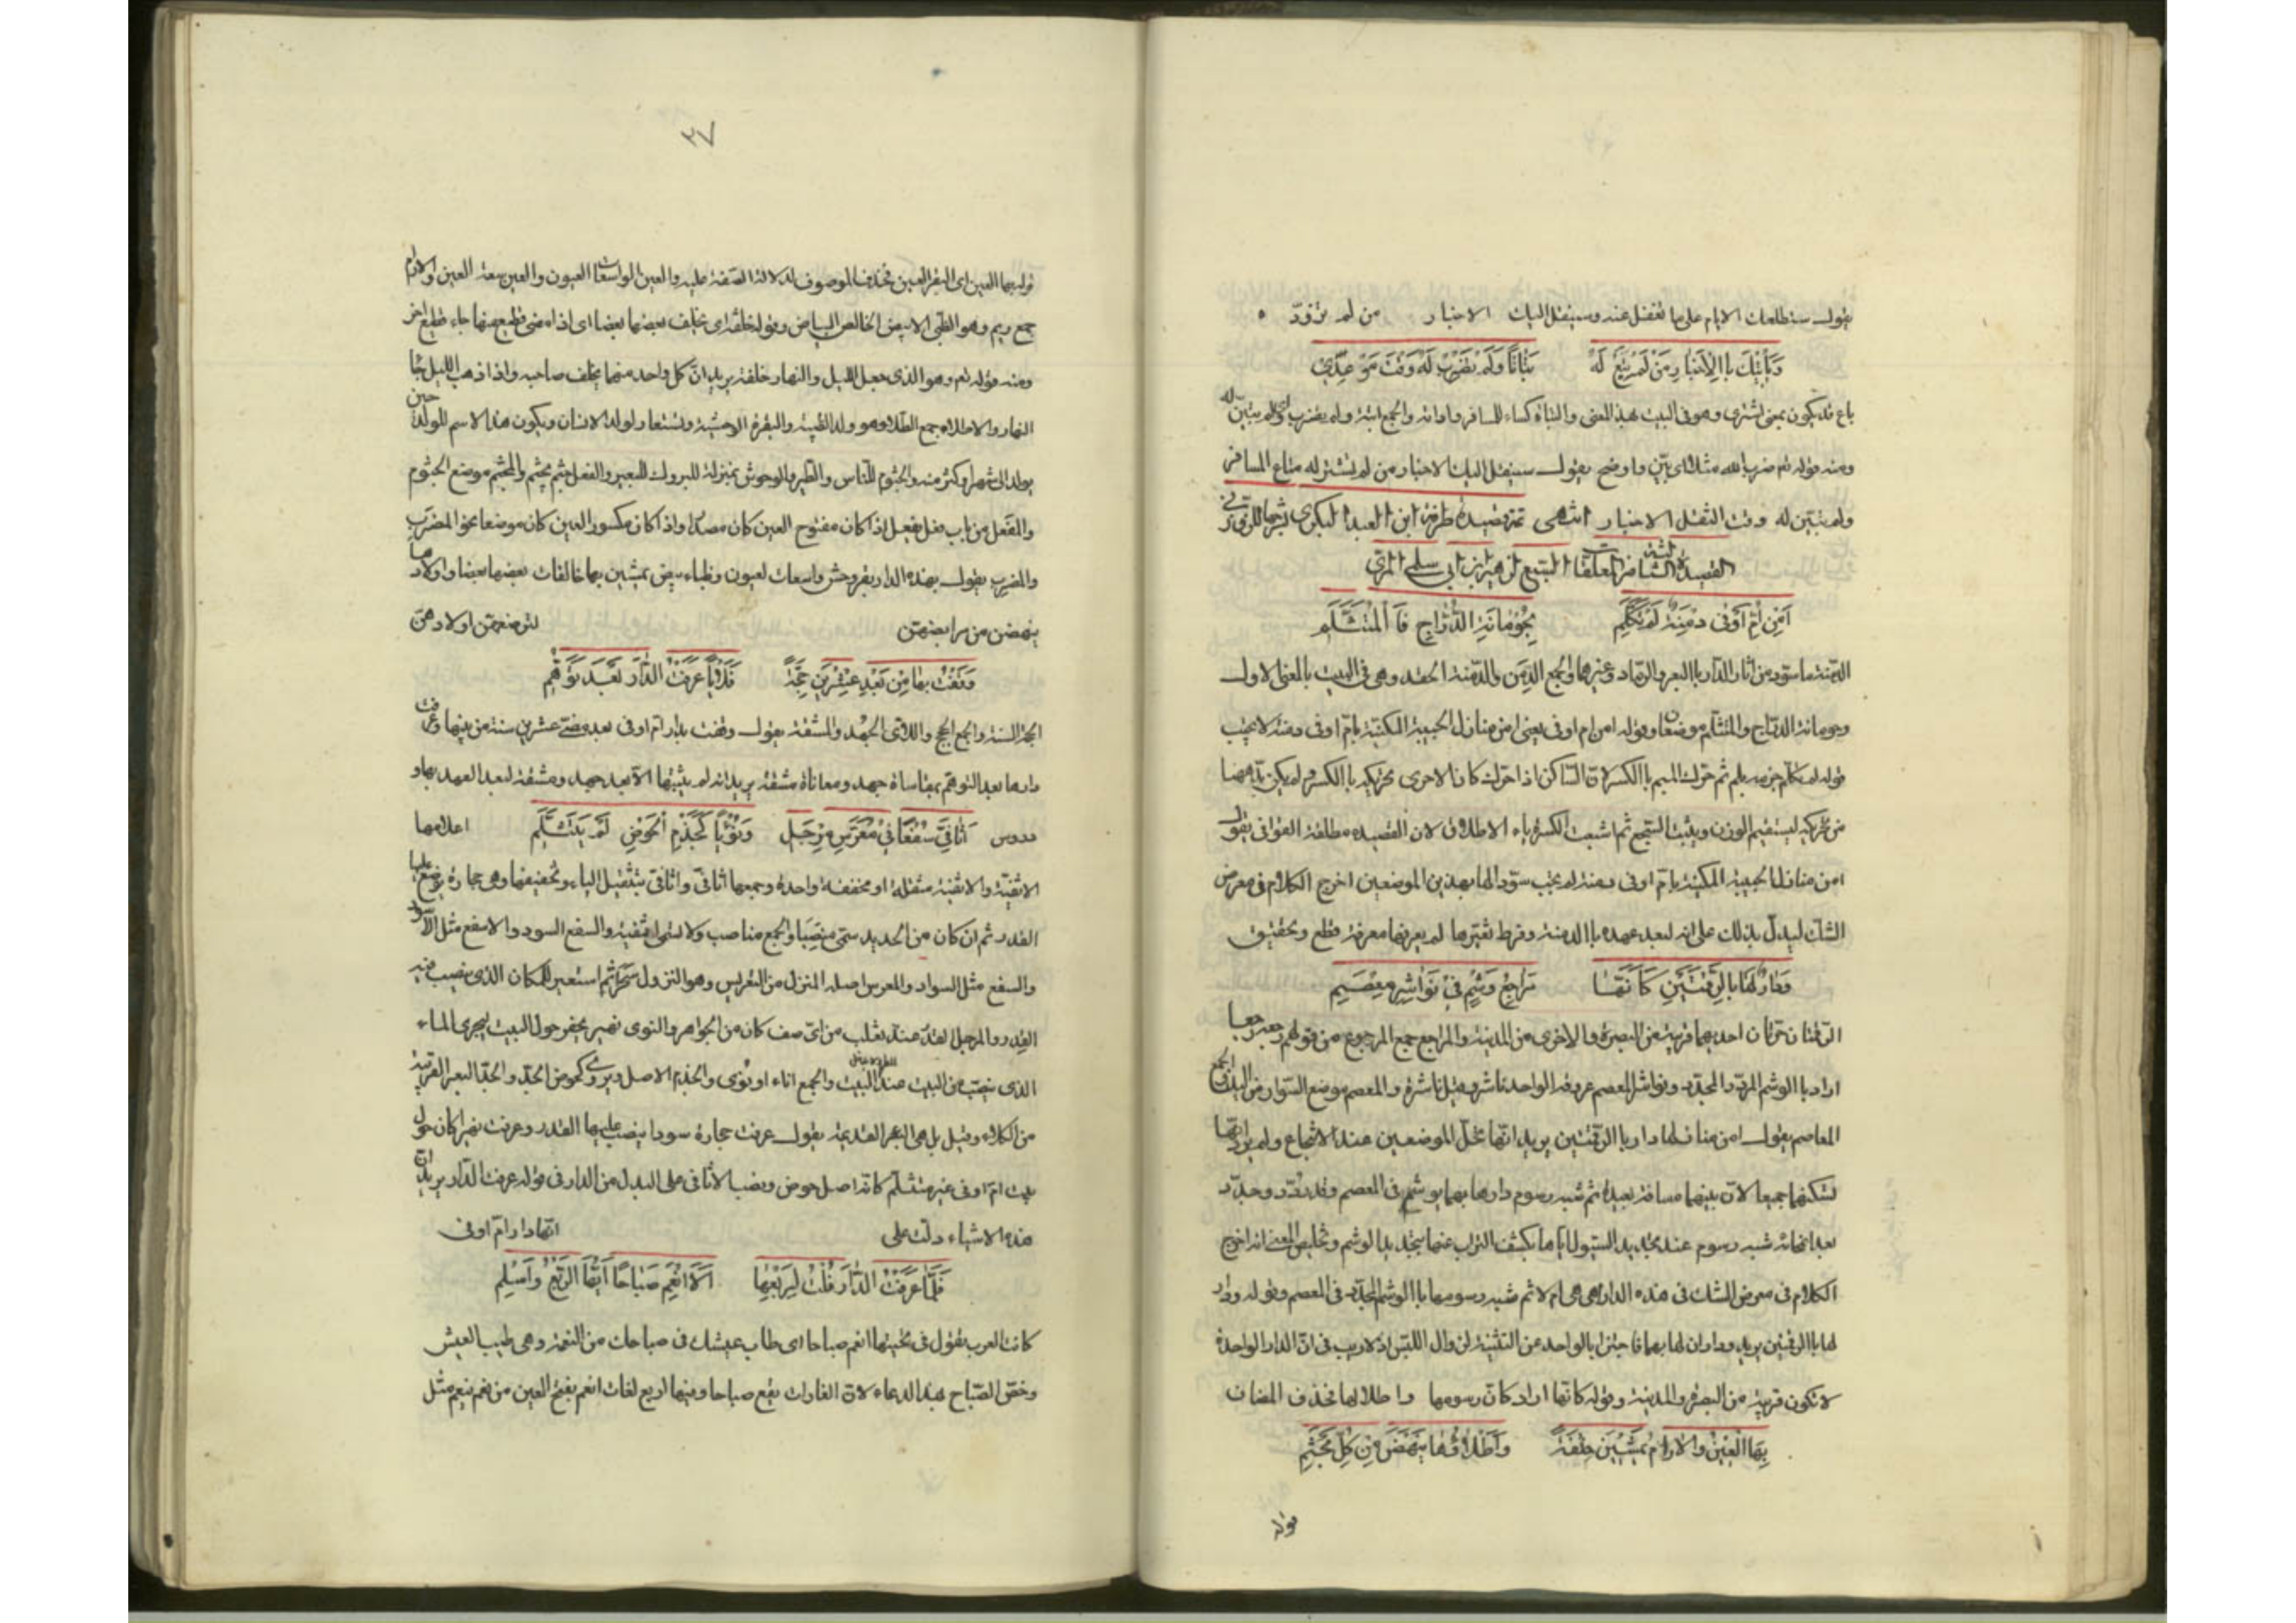 يقول ستطلعك الايام على ما تغفل عنه وسينقل اليك الاخبار من لم تزود
وَيَأْتِيكَ بِاالْاَخْبَارِ مَنْ لَمْ تَبِعْ لَهُ بَتَاتًا وَلَمْ تَضْرِبْ لَهُ وَقْتَ مَوْعِدِي
باع قد يكون بمعنى اشترى وهو فى البيت بهذ المعنى والبتاة كساء للمسافر واداته والجمع ابتة ولم يضرب اى لم يتبين له
ومنه قوله تع ضرب الله مثلا اى بيّن واوضح يقول سينقل اليك الاخبار من لم تشتر له متاع المسافر
ولم تتبين له وقت النقل الاخبار انتهى تمة قصيدة طرفة ابن العبد البكرى بشرحها للزوزنى
القصيدة الثالثة من المعلقات السبع لزهير ابن ابى سلمى المزنى
اَمِنْ اُمِّ اَوْفٰى دِمْنَةٌ لَمْ تَكَلَّمِ بِحُوْمَانَةِ الدُّرَّاجِ فَاالْمُتَثَلَّمِ
الدمنة ما سوّد من اثار الدار باالبعر والرماد وغيرهما والجمع الدمن والدمنة الحقد وهى فى البيت باالمعنى الاول
وحومانة الدراج والمتثلم موضعان وقوله امن ام اوفى يعنى امن منازل الحبيبة المكنية بام اوفى دمنة لا تجيب
قوله لم تكلم جزم بلم ثم حرك الميم باالكسر لان الساكن اذا حرك كان الاحرى تحريكه باالكسر ولم يكن بدّ ههنا
من تحريكه ليستقيم الوزن ويثبت السجع ثم اشبعت الكسرة باء الاطلاق لان القصيده مطلقة القوافى يقول
امن منازل الحبيبة المكنية بام اوفى دمنة لم تجب سؤالها بهذين الموضعين اخرج الكلام فى معرض
الشك ليدل بذلك على انه لبعد عهده باالدمنة وفرط تغيرها لم يعرفها معرفة قطع وتحقيق
وَدَارٌ لَهَا بِالرَّقْمَتَيْنِ كَاَنَّهَا مَرَاجِعُ وَشْمٍ فِيْ نَوَاشِرِ مِعْصَمِ
الرقمتان حرتان احديهما قريبة من البصرة والاخرى من المدينة والمراجع جمع المرجوع من قولهم رجعه رجعا
اراد باالوشم المردد المجدد ونواشر المعصم عروقه الواحد ناشر وقيل ناشرة والمعصم موضع السوار من اليد والجمع
المعاصم يقول امن منازلها دار باالرقمتين يريد انها تحل الموضعين عند الانتجاع ولم يرد انها
تسكنهما جميعا لان بينهما مسافة بعيدة ثم شبه رسوم دارها بهما بوشم فى المعصم وقد ردّد وجدّد
بعد انمحائه شبه رسوم عند تجديد السيول اياها بكشف التراب عنها بتجديد الوشم وتخليص المعنى انه اخرج
الكلام فى معرض الشك فى هذه الدار اهى هى ام لا ثم شبه رسومها باالوشم المجدد فى المعصم وقوله ودار
لها باالرقمتين يريد وداران لها بهما فاجتزا بالواحد عن التثنية لزوال اللبس اذ لا ريب فى ان الدار الواحدة
لا تكون قريبة من البصرة والمدينة وقوله كانها اراد كان رسومها واطلالها فحذف المضاف
بِهَا الْعِيْنُ وَالْآرَامُ يَمْشِيْنَ خِلْفَةً وَاَطْلَاؤُهَا يَنْهَضْنَ مِنْ كُلِّ مَجْثَمِ
قوله
٢٧
قوله بها العين اى البقر العين فحذف الموصوف لدلالة الصفة عليه والعين الواسعات العيون والعين سعة العين والارام
جمع ريم وهو الظبى الابيض الخالص البياض وقوله خلفة اى يخلف بعضها بعضا اى اذا مضى قطيع منها جاء قطيع اخر
ومنه قوله تع وهو الذى جعل الليل والنهار خلفة يريد ان كل واحد منهما يخلف صاحبه واذا ذهب الليل جاء
النهار والاطلاء جمع الطلا وهو ولد الظبية والبقرة الوحشية ويستعار لولد الانسان ويكون هذا الاسم للولد حين
يولد الى شهر او اكثر منه والجثوم للناس والطير والوحوش بمنزلة البروك للبعير والفعل جثم يجثم والمجثم موضع الجثوم
والمفعل من باب فعل يفعل اذا كان مفتوح العين كان مصدرا واذا كان مكسور العين كان موضعا نحو المضرَب
والمضرِب يقول بهذه الدار بقر وحش واسعات لعيون وظباء بيض يمشين بها خالفات بعضها بعضا واولادها
ينهضن من مرابضهن لترضعهن اولادهن
وَقَفْتُ بِهَا مِنْ بَعْدِ عِشْرِيْنَ حِجَّةً فَلَاْيًا عَرَفْتُ الدَّارَ بَعْدَ تَوَهُّمِ
الحجة السنة والجمع الحجج واللاى الجهد والمشقة يقول وقفت بدار ام اوفى بعد مضى عشرين سنة من بينها وعرفت
دارها بعد التوهم بمقاساة جهد ومعاناة مشقة يريد انه لم يثبتها الا بعد جهد ومشقة لبعد العهد بها و
دروس اَثَافِيَّ سُفْعًا فِيْ مُعَرَّسِ مِرْجَلِ وَنُؤْيًا كَجِذْمِ الْحَوْضِ لَمْ يَتَثَلَّمِ اعلامها
الاثفية والاثفية مثقلة او مخففة واحدة وجمعها اثافى واثافى بتثقيل الياء وتخفيفها وهى حجارة توضع عليها
القدر ثم ان كان من الحديد سمى منصبا والجمع مناصب ولا تسمى اثفية والسفع السود والاسفع مثل الاسود
والسفع مثل السواد والمعرس اصله المنزل من التعريس وهو النزول سحرا ثم استعير للمكان الذى ينصب فيه
القدر والمرجل القدر عند ثعلب من اى صنف كان من الجواهر والنوى نهير يحفر حول البيت ليجرى الماء
الذى ينصب من البيت عند البيت والجمع اناء او نؤى والجذم الاصل ويروى كحوض الجد والجد البئر القريبة
من الكلاء وقيل بل هى البئر القديمة يقول عرفت حجارة سودا ينصب عليها القدر وعرفت نهيرا كان حول
بيت ام اوفى غير متثلم كانه اصل حوض ونصب الاثافى على البدل من الدار فى قوله عرفت الدار يريد ان
هذه الاشياء دلت على انها دار ام اوفى
فَلَمَّا عَرَفْتُ الدَّارَ قُلْتُ لِرَبْعِهَا اَلَا انْعِمْ صَبَاحًا اَيُّهَا الرَّبْعُ وَاسْلَمِ
كانت العرب يقول فى تحيتها انعم صباحا اى طاب عيشك فى صباحك من النعمة وهى طيب العيش
وخص الصباح بهذ الدعاء لان الغارات يقع صباحا وفيها اربع لغات انعم بفتح العين من نعم ينعم مثل